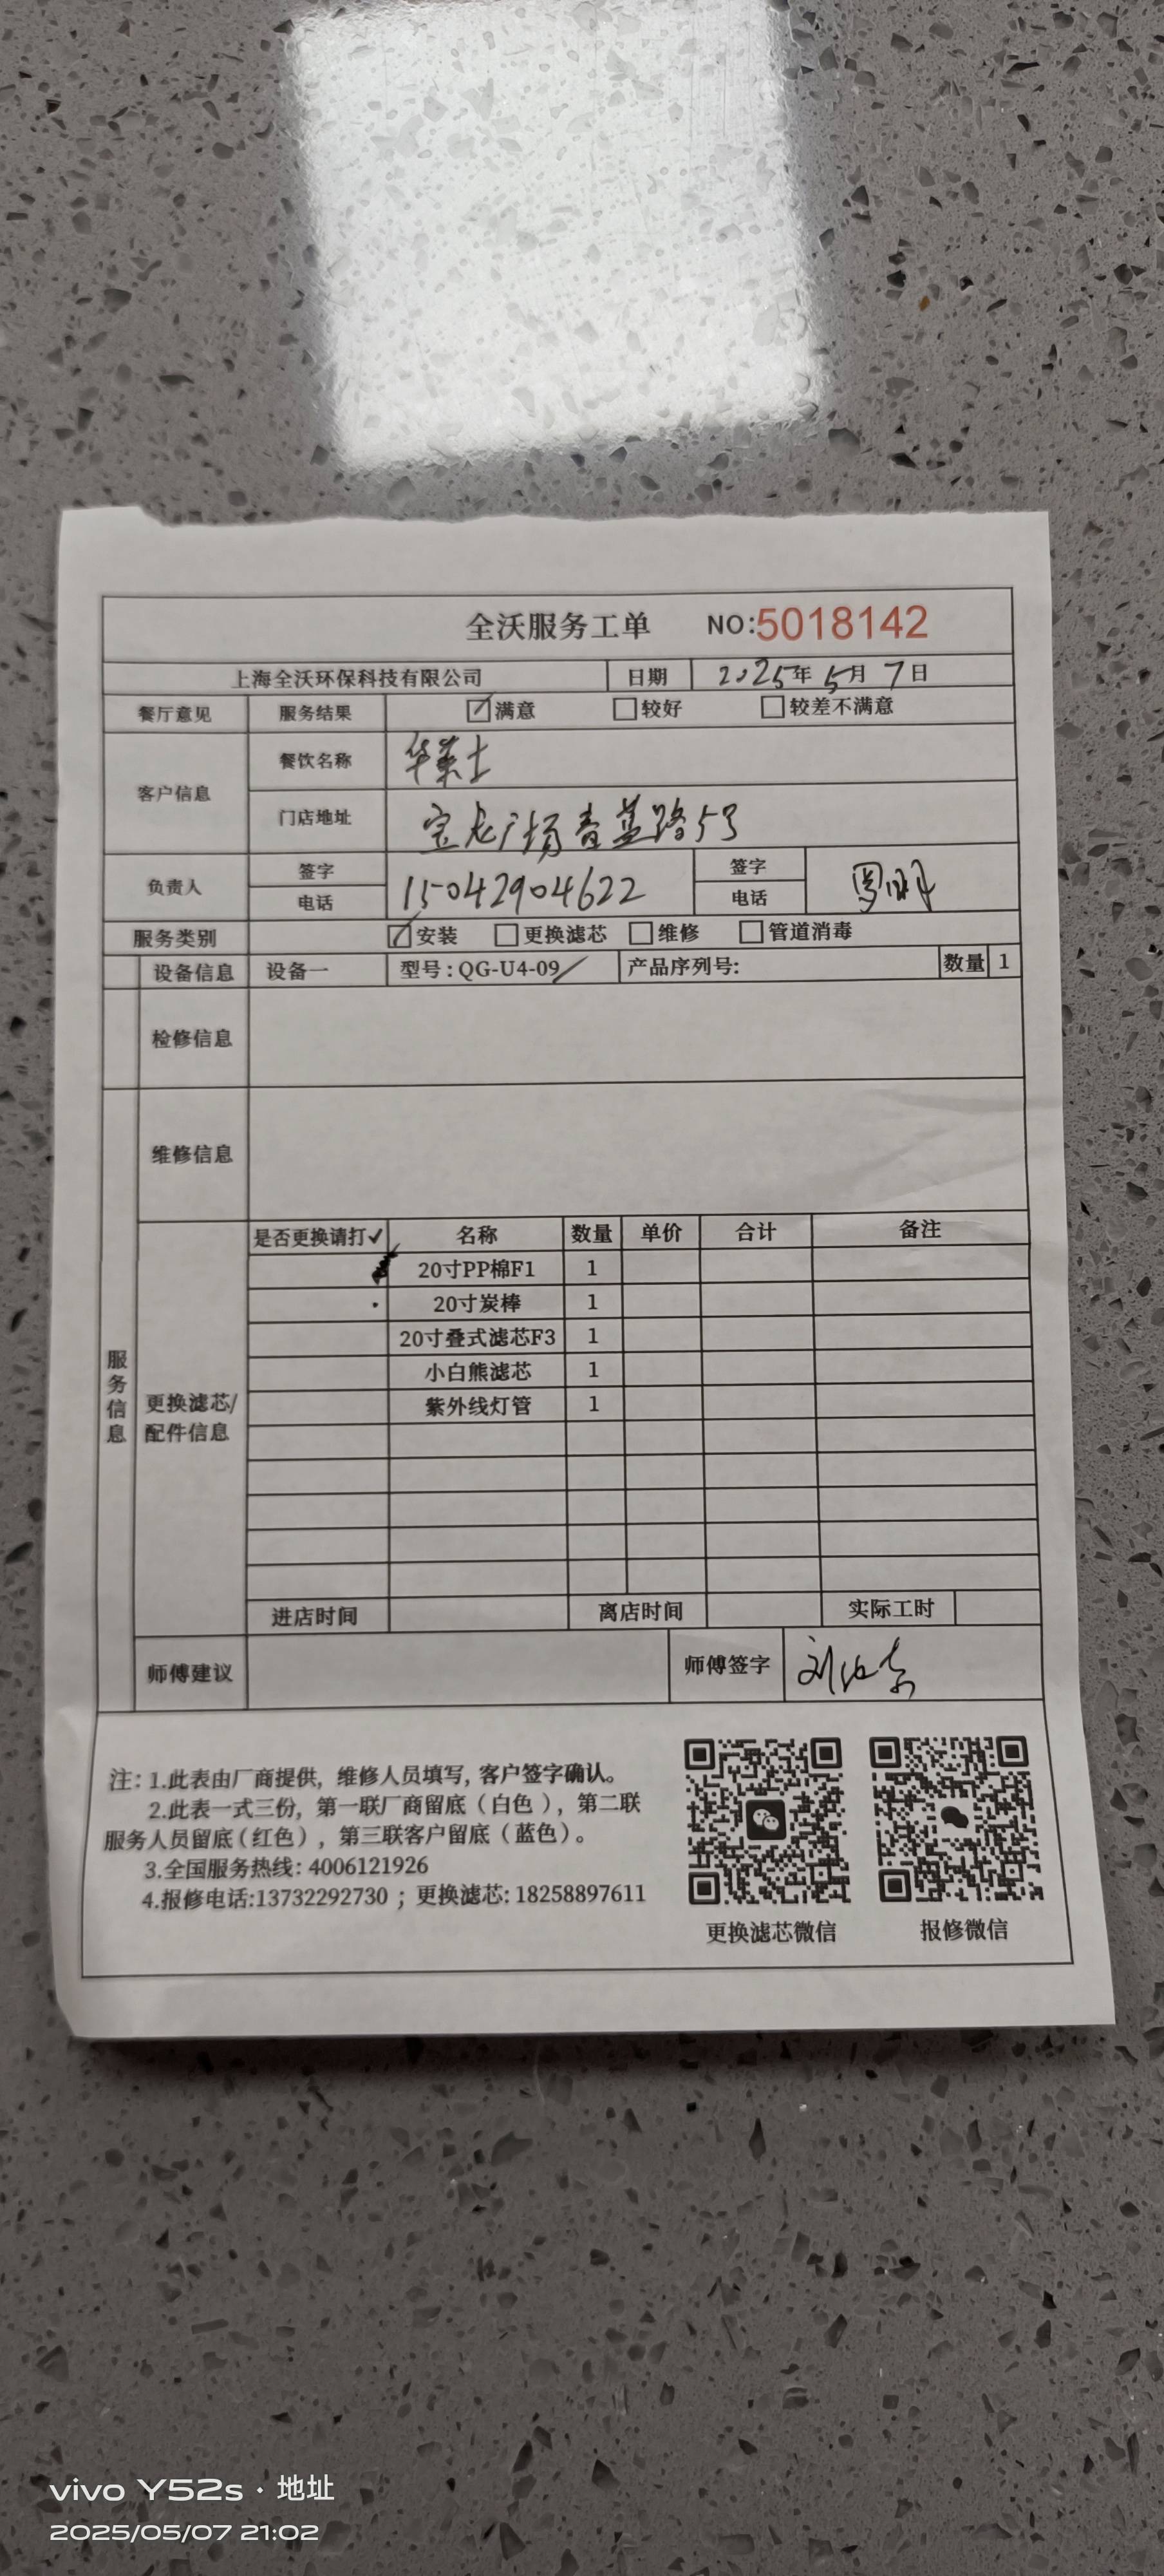 全沃服务工单 NO:5018142
上海全沃环保科技有限公司 日期 2025年5月7日
餐厅意见 服务结果 ☑满意 □较好 □较差不满意
客户信息 餐饮名称 华莱士
门店地址 宝龙广场青蓝路5号
负责人 签字 签字
电话 15042904622 电话
服务类别 ☑安装 □更换滤芯 □维修 □管道消毒
设备信息 设备一 型号：QG-U4-09 产品序列号: 数量 1
检修信息
维修信息
服务信息
更换滤芯/
配件信息
是否更换请打✓ 名称 数量 单价 合计 备注
20寸PP棉F1 1
20寸炭棒 1
20寸叠式滤芯F3 1
小白熊滤芯 1
紫外线灯管 1
进店时间 离店时间 实际工时
师傅建议 师傅签字
注：1.此表由厂商提供，维修人员填写，客户签字确认。
2.此表一式三份，第一联厂商留底（白色），第二联
服务人员留底（红色），第三联客户留底（蓝色）。
3.全国服务热线：4006121926
4.报修电话:13732292730 ；更换滤芯: 18258897611
更换滤芯微信 报修微信
vivo Y52s · 地址
2025/05/07 21:02